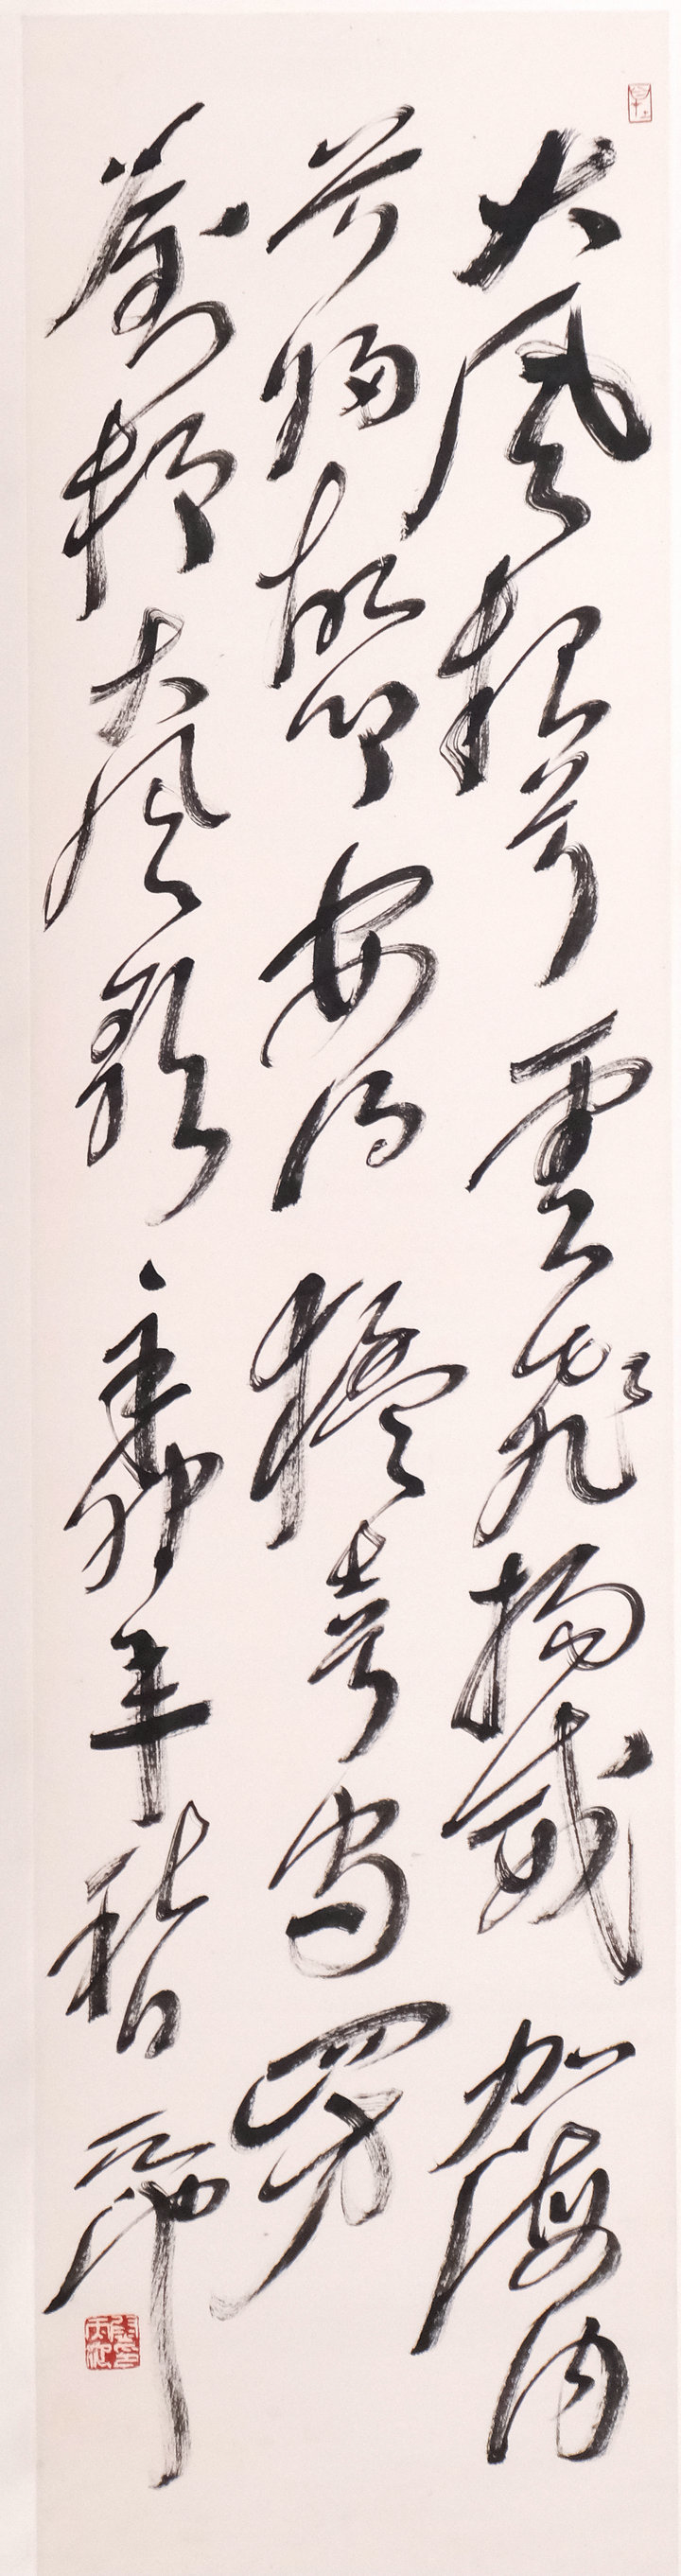 大風起兮雲飛揚威加海内
兮歸故鄉安得猛士兮守四方
劉邦大風歌辛卯年